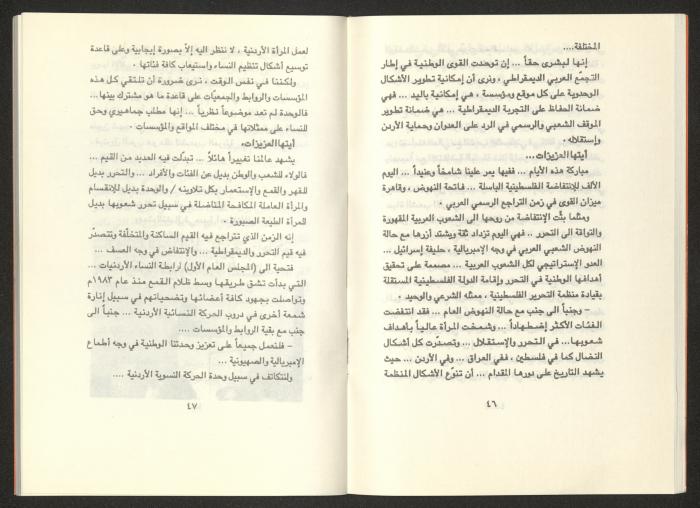 المختلفة....
إنها لبشرى حقاً ... إن توحدت القوى الوطنية في إطار
التجمّع العربي الديمقراطي ، ونرى أن إمكانية تطوير الأشكال
الوحدوية على كل موقع ومؤسسة ، هي إمكانية باليد ... فهي
ضمانة الحفاظ على التجربة الديمقراطية ... هي ضمانة تطوير
الموقف الشعبي والرسمي في الرد على العدوان وحماية الأردن
وإستقلاله .
أيتها العزيزات ...
مباركة هذه الأيام ... ففيها يمر علينا شامخاً وعنيداً ... اليوم
الألف للإنتفاضة الفلسطينية الباسلة ... فاتحة النهوض ، وقاهرة
ميزان القوى في زمن التراجع الرسمي العربي .
ومثلما بثّت الإنتفاضة من روحها الى الشعوب العربية المقهورة
والتواقة الى التحرر .. فهي اليوم تزداد ثقة ويشتد أزرها مع حالة
النهوض الشعبي العربي في وجه الإمبريالية ، حليفة إسرائيل ...
العدو الإستراتيجي لكل الشعوب العربية ... مصممة على تحقيق
أهدافها الوطنية في التحرر وإقامة الدولة الفلسطينية المستقلة
بقيادة منظمة التحرير الفلسطينية ، ممثله الشرعي والوحيد .
– وجنباً الى جنب مع حالة النهوض العام ... فقد انتفضت
الفئات الأكثر إضطهاداً ... وشمخت المرأة عالياً بأهداف
شعوبها... في التحرر والإستقلال ... وتصدّرت كل أشكال
النضال كما في فلسطين ، ففي العراق ... وفي الأردن ... حيث
يشهد التاريخ على دورها المقدام ... أن تنوّع الأشكال المنظمة
٤٦
لعمل المرأة الأردنية ، لا ننظر اليه إلاّ بصورة إيجابية وعلى قاعدة
توسيع أشكال تنظيم النساء واستيعاب كافة فئاتها .
ولكننا في نفس الوقت ، نرى ضرورة أن تلتقي كل هذه
المؤسسات والروابط والجمعيّات على قاعدة ما هو مشترك بينها...
فالوحدة لم تعد موضوعاً نظرياً ... إنها مطلب جماهيري وحق
للنساء على ممثلاتها في مختلف المواقع والمؤسسات .
أيتها العزيزات،
يشهد عالمنا تغييراً هائلاً ... تبدّلت فيه العديد من القيم ...
فالولاء للشعب والوطن بديل عن الفئات والأفراد ... والتحرر بديل
للقهر والقمع والإستعمار بكل تلاوينه / والوحدة بديل للإنقسام
والمرأة العاملة المكافحة المناضلة في سبيل تحرر شعوبها بديل
للمرأة الطيعة الصبورة .
إنه الزمن الذي تتراجع فيه القيم الساكنة والمتخلّفة وتتصدّر
فيه قيم التحرر والديمقراطية ... والإنتفاض في وجه العسف ...
فتحية الى (المجلس العام الأول) لرابطة النساء الأردنيات ...
التي بدأت تشق طريقها وسط ظلام القمع منذ عام ١٩٨٣م
وتواصلت بجهود كافة أعضائها وتضحياتهم في سبيل إنارة
شمعة أخرى في دروب الحركة النسائية الأردنية ... جنباً الى
جنب مع بقية الروابط والمؤسسات ....
– فلنعمل جميعاً على تعزيز وحدتنا الوطنية في وجه أطماع
الإمبريالية والصهيونية ...
ولنتكاتف في سبيل وحدة الحركة النسوية الأردنية ....
٤٧